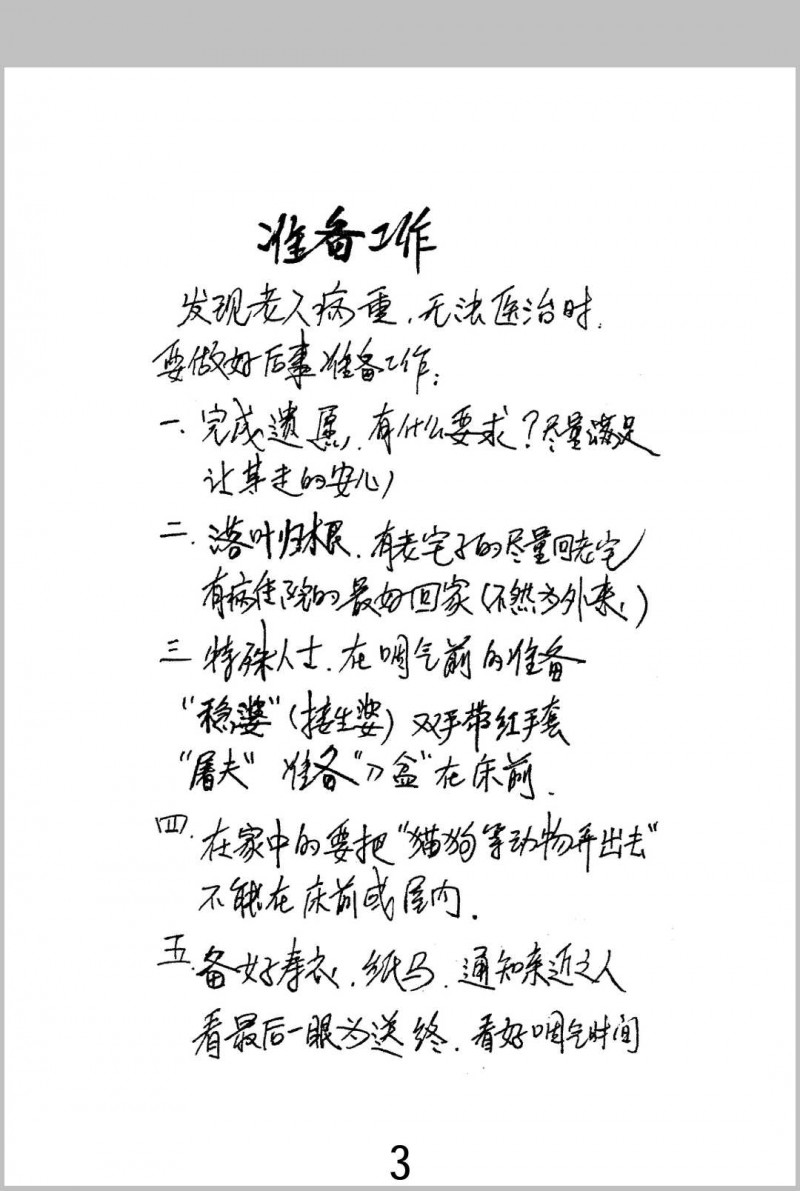 准备工作
发现老人病重，无法医治时，
要做好后事准备工作：
一、完成遗愿，有什么要求？尽量满足
让其走的安心
二、落叶归根，有老宅子的尽量回老宅
有病住院的最好回家（不然为外来）
三、特殊人士，在咽气前的准备
“稳婆”（接生婆）双手带红手套
“屠夫”准备“刀盆”在床前。
四、在家中的要把“猫狗等动物弄出去”
不能在床前或屋内。
五、备好寿衣、纸马，通知亲近之人
看最后一眼为送终，看好咽气时间
3